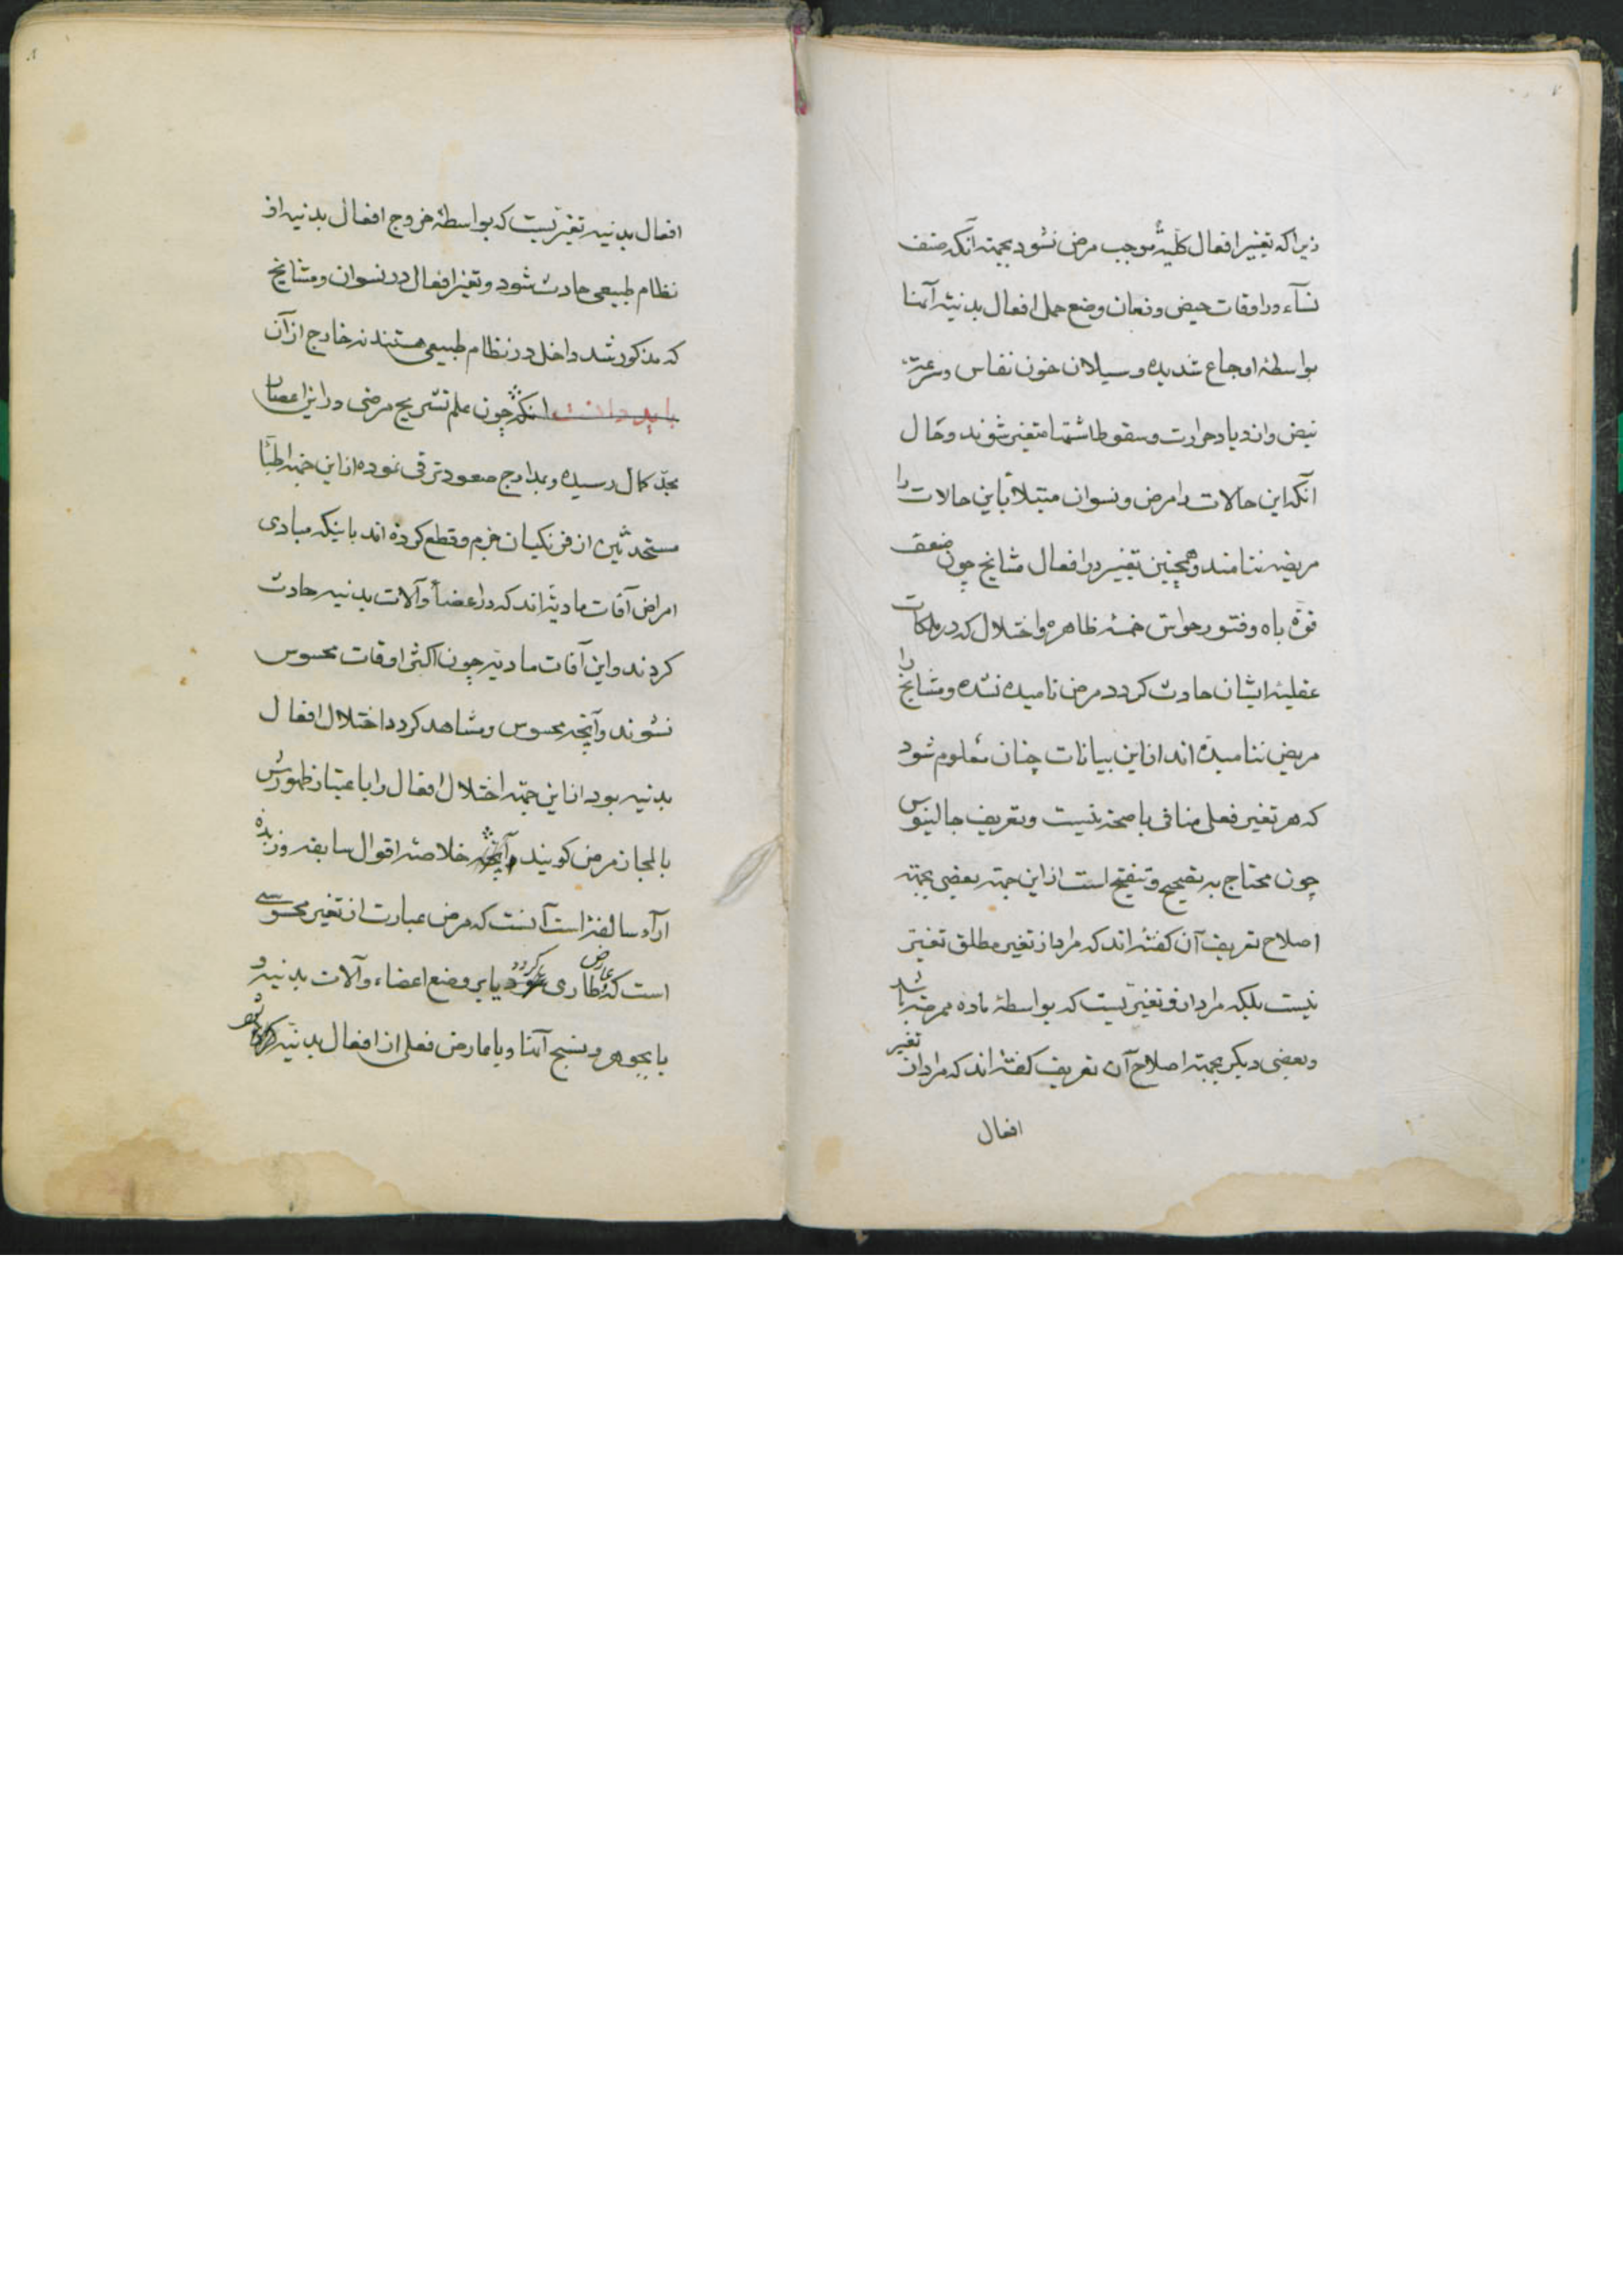 ۷
زیرا که تغییر افعال کلیةً موجب مرض نشود بجهته آنکه صنف
نسآء در اوقات حیض و زمان وضع حمل افعال بدنیّه آنها
بواسطهٔ اوجاع شدیده و سیلان خون نفاس و سرعته
نبض و ازدیاد حرارت و سقوط اشتها متغیر شوند و حال
آنکه این حالات را مرض و نسوان مبتلا باین حالات را
مریضه ننامند و همچنین تغییر در افعال مشایخ چون ضعف
قوّة باه و فتور حواس خمسه ظاهره و اختلال که در ملکات
عقلیه ایشان حادث کردد مرض نامیده نشده و مشایخ را
مریض ننامیده اند از این بیانات چنان معلوم شود
که هر تغییر فعلی منافی با صحته نیست و تعریف جالینوس
چون محتاج به تصحیح و تنقیح است از این جهته بعضی بجهته
اصلاح تعریف آن کفته اند که مراد از تغییر مطلق تغییر
نیست بلکه مراد از تغییریست که بواسطهٔ ماده ممرضه باشد
و بعضی دیکر بجهته اصلاح آن تعریف کفته اند که مراد از تغییر
افعال
۸
افعال بدنیه تغیّریست که بواسطهٔ خروج افعال بدنیه از
نظام طبیعی حادث شود و تغیّر افعال در نسوان و مشایخ
که مذکور شد داخل در نظام طبیعی هستند نه خارج از آن
باید دانست آنکه چون علم تشریح مرضی در این اعصار
بحدّ کمال رسیده و بمدارج صعود ترقی نموده از این جهته اطبّآ
مستحدثین از فرنکیان جزم و قطع کرده اند باینکه مبادی
امراض آفات مادیه اند که در اعضآ و آلات بدنیه حادث
کردند و این آفات مادیه چون اکثر اوقات محسوس
نشوند و آنچه محسوس و مشاهد کردد اختلال افعال
بدنیه بود از این جهته اختلال افعال را باعتبار ظهورش
بالمجاز مرض کویند و آنچه خلاصه اقوال سابقه و زبده
ارآء سالفه است آنست که مرض عبارت از تغییر محسوسی
است که عارض و طاری کردد یا بر وضع اعضاء و آلات بدنیه و
یا بجوهر و نسج آنها و یا عارض فعلی از افعال بدنیه شود